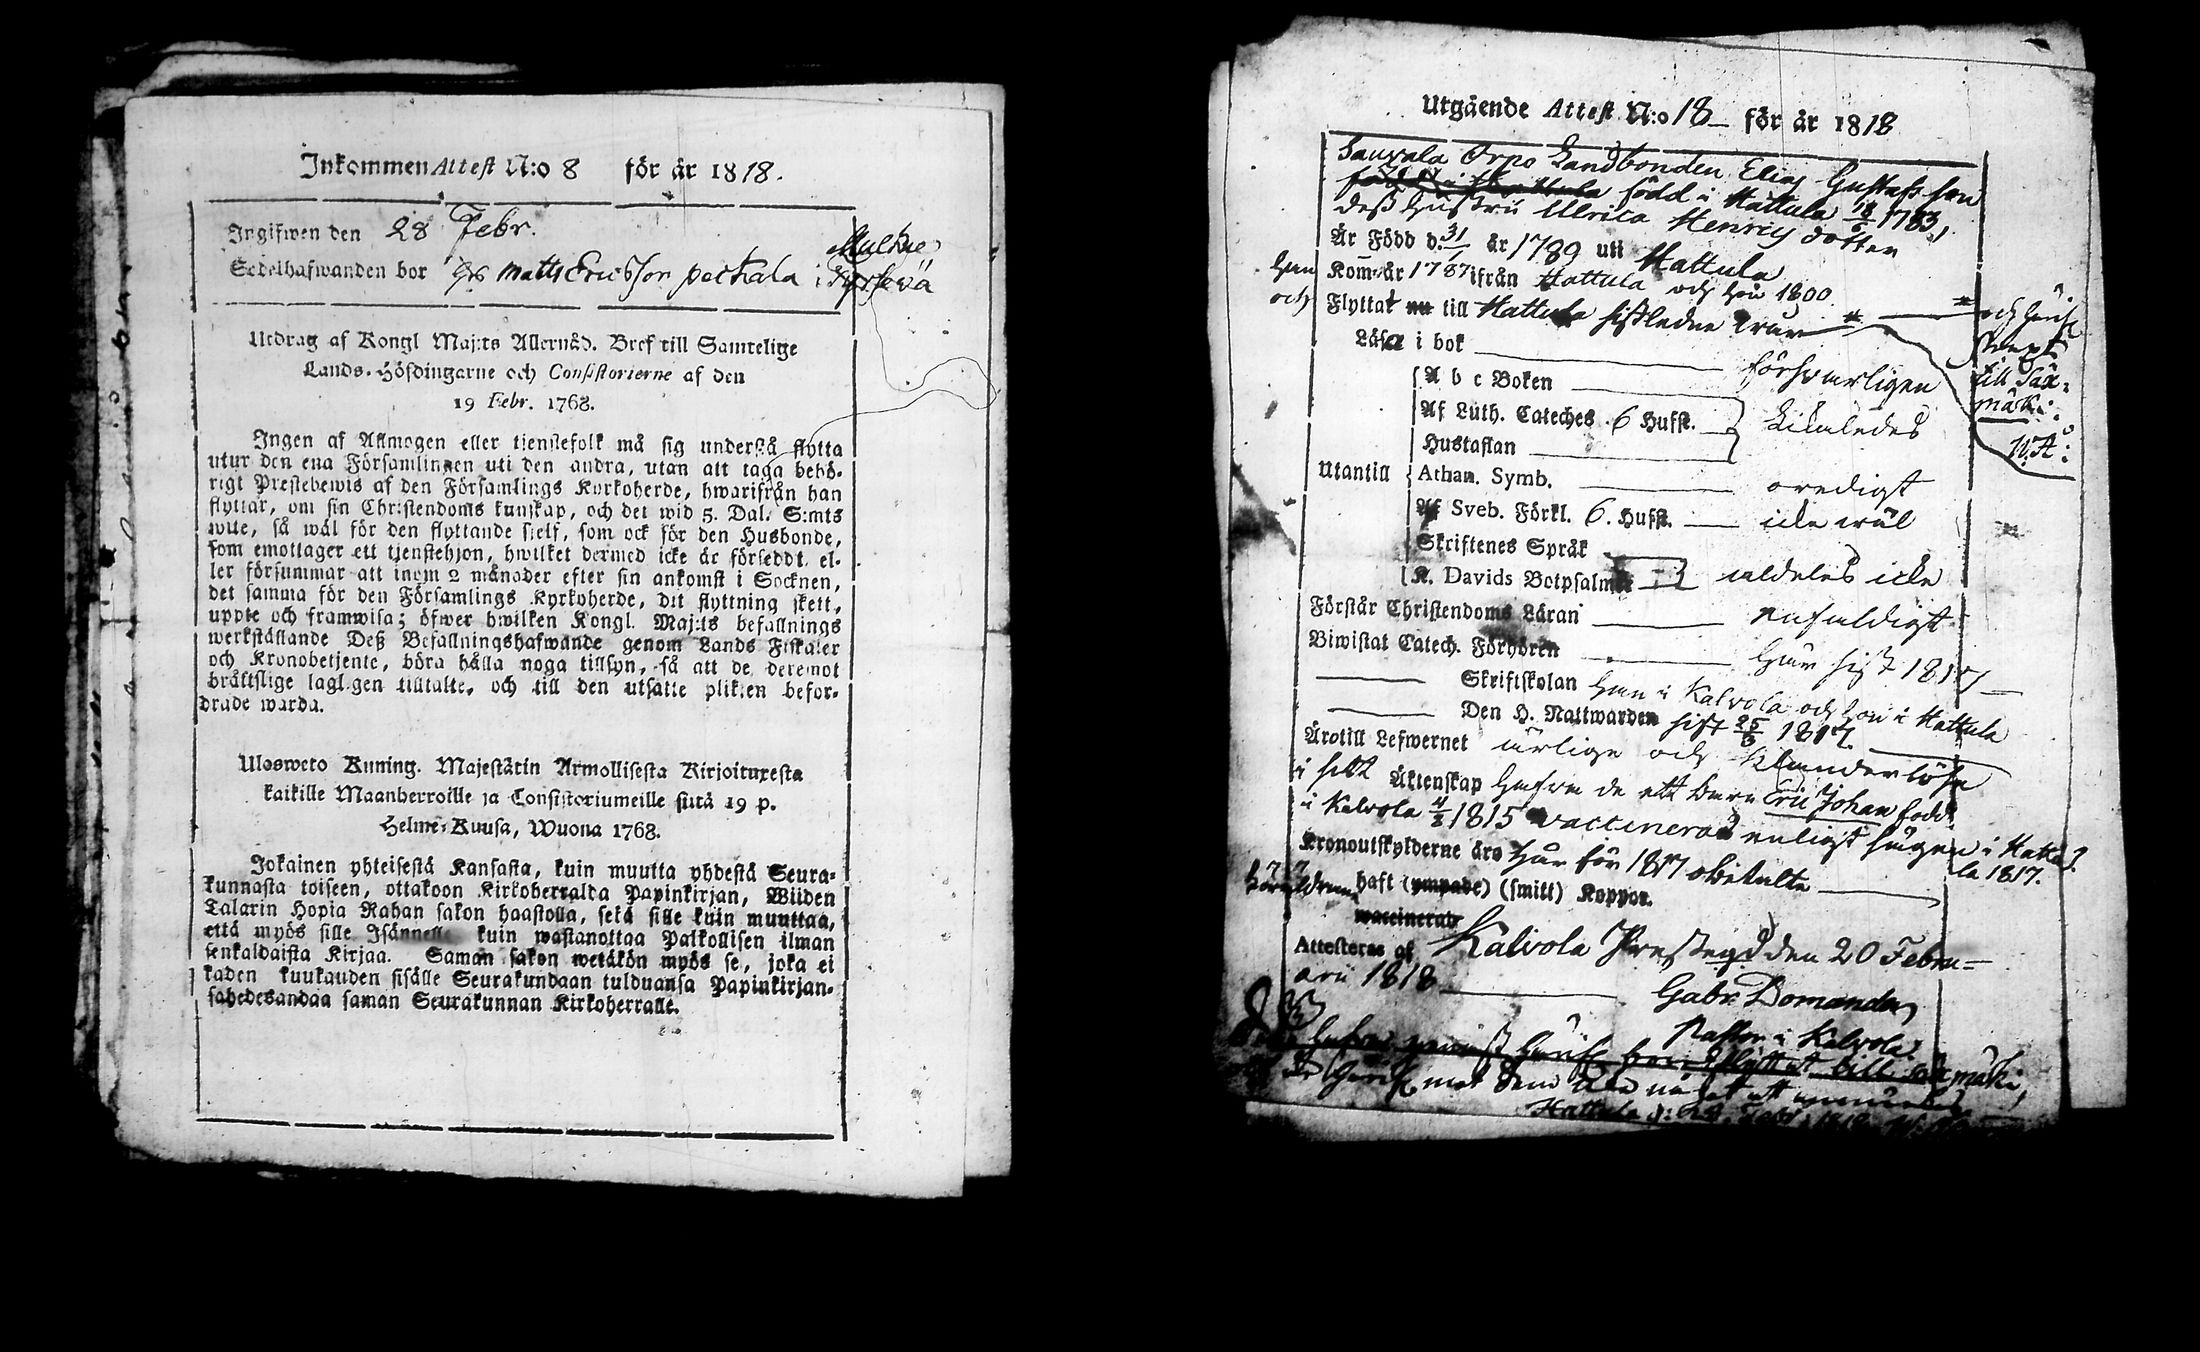 Inkommen Attest N:o 8 för år 1818.
Ingifwen den 28 Febr.
Sedelhafwanden bor hos Matts Ericsson peckala i Tyrfevä
Utdrag af Kongl Maj:ts Allernåd. Bref till Samtelige
Lands-Höfdingarne och Consistorierne af den
19 Febr. 1768.
Ingen af Allmogen eller tjenstefolk må sig understå flytta
utur den ena Församlingen uti den andra, utan att taga behö-
rigt Prestebewis af den Församlings Kyrkoherde, hwarifrån han
flyttar, om sin Christendoms kunskap, och det wid 5. Dal. S:mts
wite, så wäl för den flyttande sjelf, som ock för den Husbonde,
som emottager ett tjenstehjon, hwilket dermed icke är försedt, el-
ler försummar att inom 2 månader efter sin ankomst i Socknen,
det samma för den Församlings Kyrkoherde, dit flyttning skett,
uppte och framwisa; öfwer hwilken Kongl. Maj:ts befallnings
werkställande Deß Befallningshafwande genom Lands Fiskaler
och Kronobetjente, böra hålla noga tillsyn, så att de deremot
bråttslige lagligen tilltalte, och till den utsatte plikten befor-
drade warda.
Ulosweto Kuning. Majestätin Armollisesta Kirjoituxesta
kaikille Maanherroille ja Consistoriumeille siitä 19 p.
Helme-Kuusa, Wuona 1768.
Jokainen yhteisestä Kansasta, kuin muutta yhdestä Seura-
kunnasta toiseen, ottakoon Kirkoherralda Papinkirjan, Wiiden
Talarin Hopia Rahan sakon haastolla, sekä sille kuin muuttaa,
että myös sille Isännelle kuin wastanottaa Palkollisen ilman
senkaldaista Kirjaa. Saman sakon wetäkön myös se, joka ei
kaden kuukauden sisälle Seurakundaan tulduansa Papinkirjan-
sahedesandaa saman Seurakunnan Kirkoherralle.
Utgående Attest N:o 18 för år 1818
Sauvala Orpo Landbonden Elias Gustafsson
född i Hattula 18/6 1783,
deß hustru Ulrica Henricsdotter
Är Född d. 31/1 år 1789 uti Hattula
Han Kom år 1787 ifrån Hattula och hon 1800
och Flyttat till Hattula sistledne
och
till Säx-
mäki.
Läsa i bok försvarligen
A b c Boken
Af Luth. Cateches 6 Hufst.
Hustaflan
Utantill Athan. Symb. oredigt
Af Sveb. Förkl. 6. Hufst. icke wäl
Skriftenes Språk
K. Davids Botpsalmer aldeles icke
Förstår Christendoms Läran enfaldigt
Biwistat Catech. Förhören här sist 1817
Skriftskolan han i Kalvola och hon i Hattula
Den H. Nattwarden sist 25/8 1817.
Äro till Lefwernet ärlige och klanderlöse
i sitt Äktenskap hafva de ett barn Eric Johan född
i Kalvola 4/2 1815 vaccinerad enligt sägen i Hattu-
la 1817.
Kronoutskylderne äro här för 1817 obetalte
haft (ympade) (smitt) Koppor.
vaccinerad
Attesteras af Kalvola Prestegd den 20 Febru-
arii 1818
Gabr. Bomander
Pastor i Kalvola.